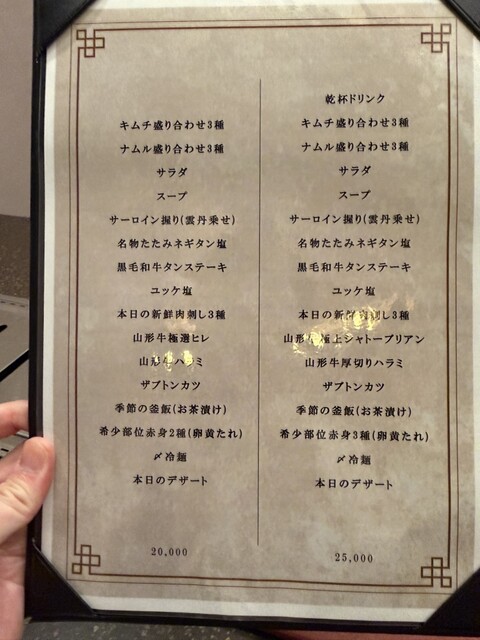 キムチ盛り合わせ3種
ナムル盛り合わせ3種
サラダ
スープ
サーロイン握り(雲丹乗せ)
名物たたみネギタン塩
黒毛和牛タンステーキ
ユッケ塩
本日の新鮮肉刺し3種
山形牛極選ヒレ
山形牛ハラミ
ザブトンカツ
季節の釜飯(お茶漬け)
希少部位赤身2種(卵黄たれ)
〆冷麺
本日のデザート
20,000
乾杯ドリンク
キムチ盛り合わせ3種
ナムル盛り合わせ3種
サラダ
スープ
サーロイン握り(雲丹乗せ)
名物たたみネギタン塩
黒毛和牛タンステーキ
ユッケ塩
本日の新鮮肉刺し3種
山形牛極上シャトーブリアン
山形牛厚切りハラミ
ザブトンカツ
季節の釜飯(お茶漬け)
希少部位赤身3種(卵黄たれ)
〆冷麺
本日のデザート
25,000